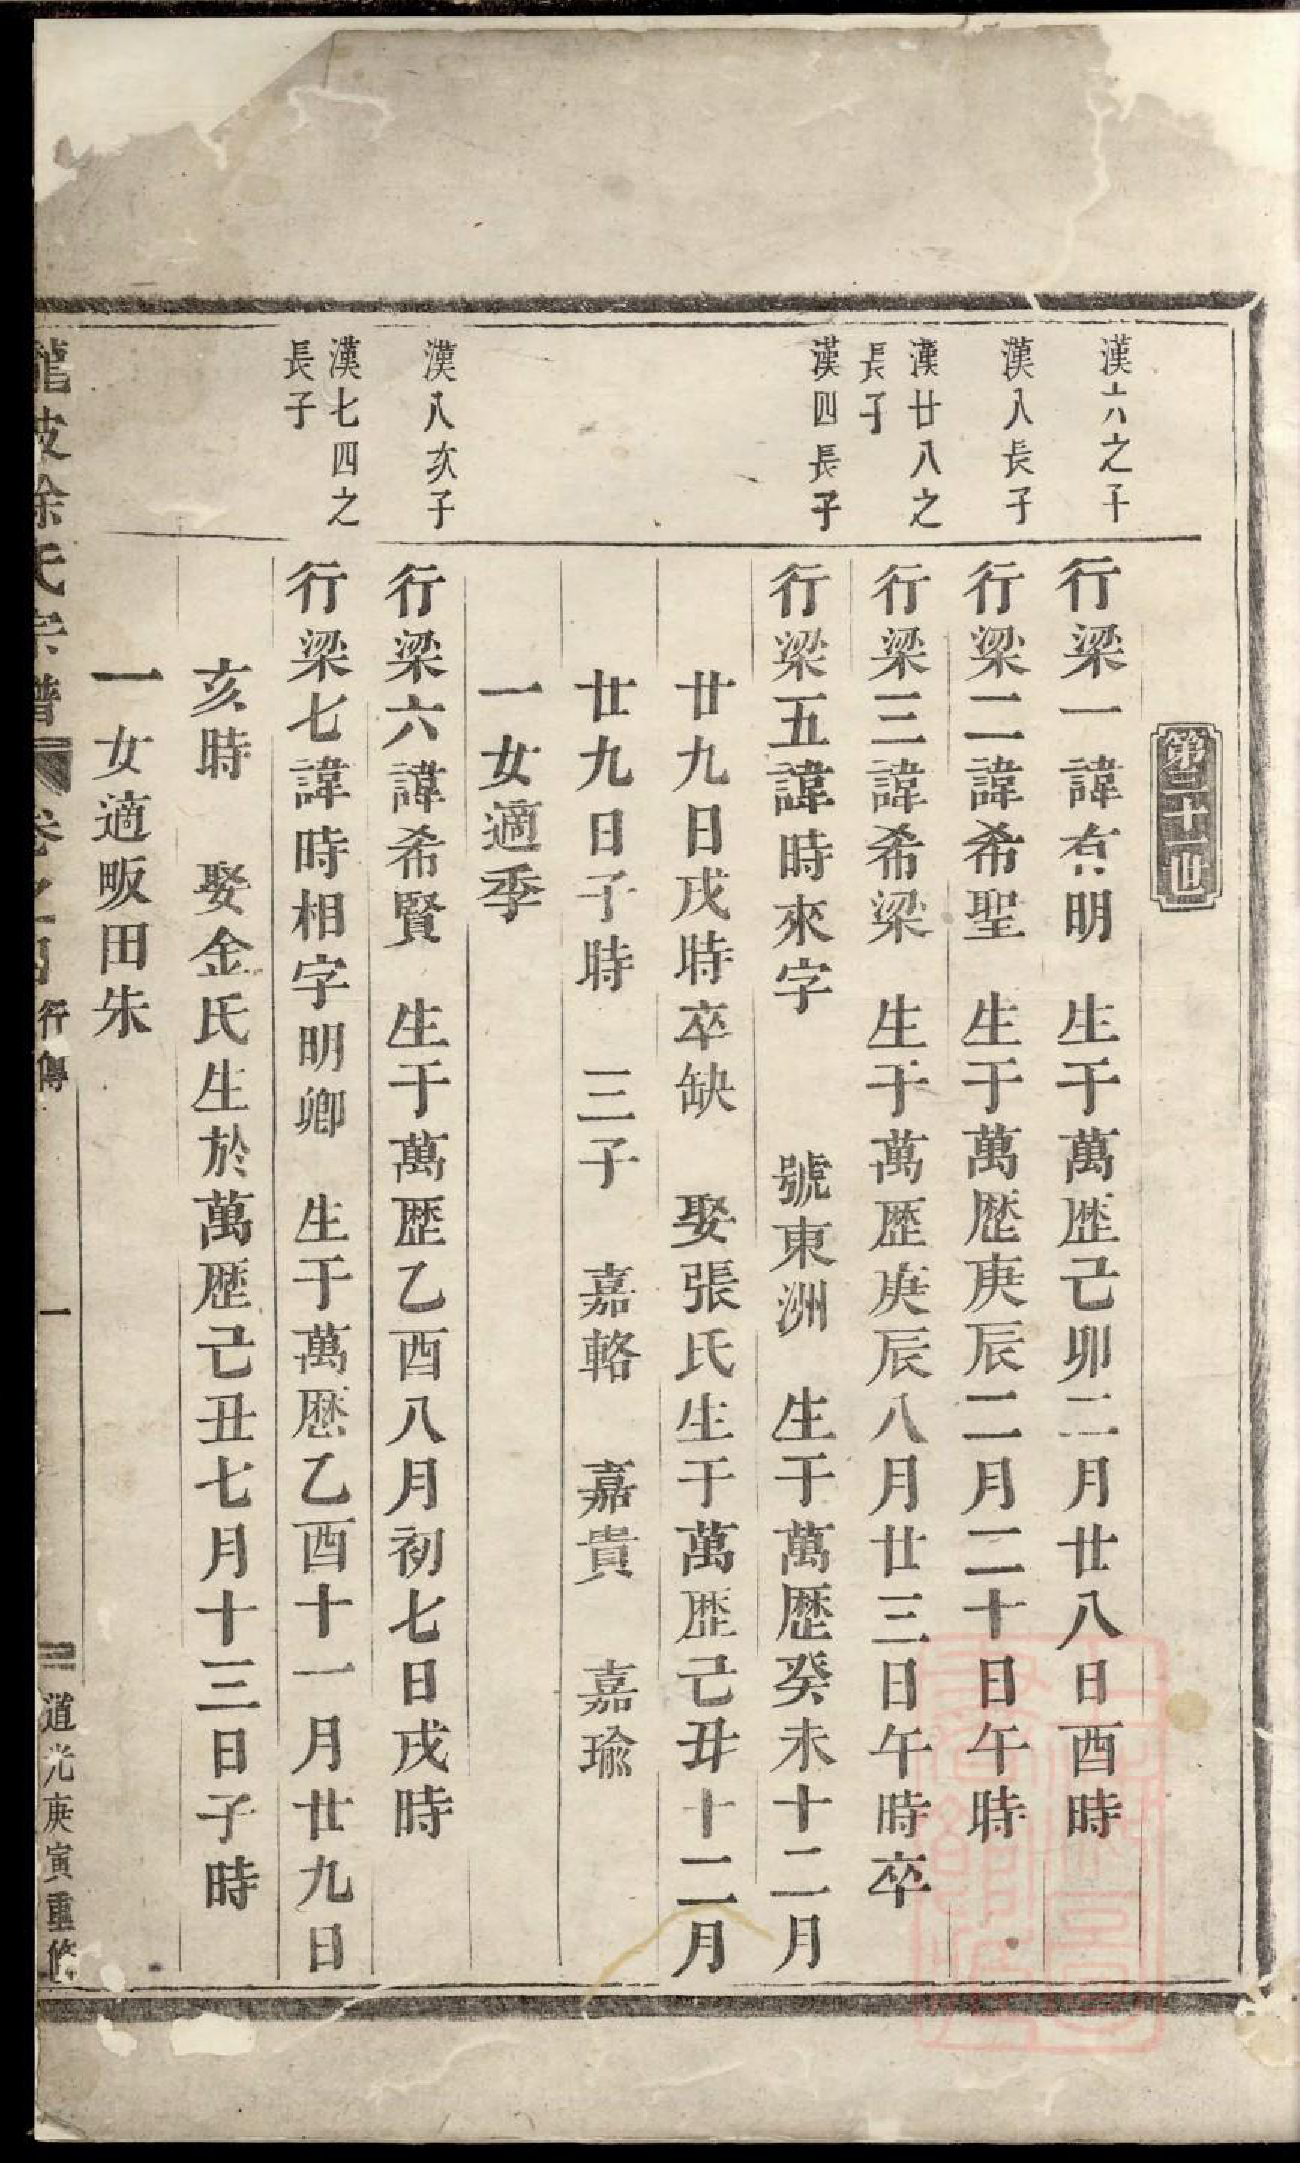 第二十一世
漢六之子
行梁一諱有明 生于萬歷己卯二月廿八日酉時
漢八長子
行梁二諱希聖 生于萬歷庚辰二月二十日午時
漢廿八之
長子
行梁三諱希梁 生于萬歷庚辰八月廿三日午時卒
漢四長子
行梁五諱時來字 號東洲 生于萬歷癸未十二月
廿九日戌時卒缺 娶張氏生于萬歷己丑十二月
廿九日子時 三子 嘉輅 嘉貴 嘉瑜
一女適季
漢八次子
行梁六諱希賢 生于萬歷乙酉八月初七日戌時
漢七四之
長子
行梁七諱時相字明卿 生于萬歷乙酉十一月廿九日
亥時 娶金氏生於萬歷己丑七月十三日子時
一女適畈田朱
龍坡徐氏宗譜 卷之 行傳 一 道光庚寅重修